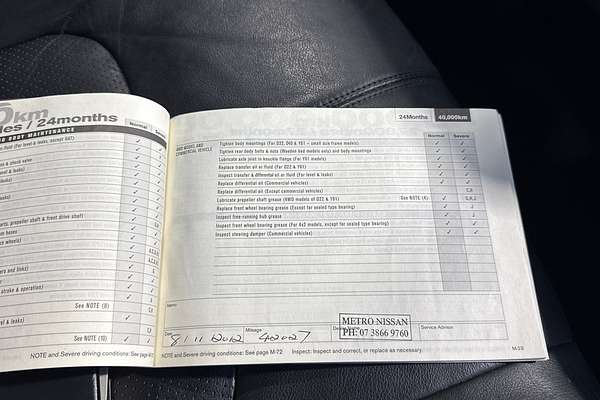 km
les / 24months
D BODY MAINTENANCE
Normal
Severe
fluid (For level & leaks, except R47)
& stud valve
leaks)
leaks)
& leaks)
arts, propeller shaft & front drive shaft)
um hoses
cs wheels)
ers and links)
stroke & operation)
See NOTE (8)
l & leaks)
See NOTE (10)
NOTE and Severe driving conditions: See page
24Months
40,000km
4WD MODEL AND
COMMERCIAL VEHICLE
Normal
Severe
Tighten body mountings (For D22, D40 & Y61 – small sus frame models)
Tighten rear body bolts & nuts (Wooden bed models only) and body mountings
Lubricate axle joint in knuckle flange (For Y61 models)
Replace transfer oil or fluid (For D22 & Y61)
Inspect transfer & differential oil or fluid (For level & leaks)
Replace differential oil (Commercial vehicles)
Replace differential oil (Except commercial vehicles)
Lubricate propeller shaft grease (4WD models of D22 & Y61)
See NOTE (4)
Replace front wheel bearing grease (Except for sealed type bearing)
Inspect free-running hub grease
Inspect front wheel bearing grease (For 4x2 models, except for sealed type bearing)
Inspect steering damper (Commercial vehicles)
Memo:
Date
8/11/2012
Mileage
42027
METRO NISSAN
PH: 07 3866 9760
Service Advisor
NOTE and Severe driving conditions: See page M-72 Inspect: Inspect and correct, or replace as necessary.